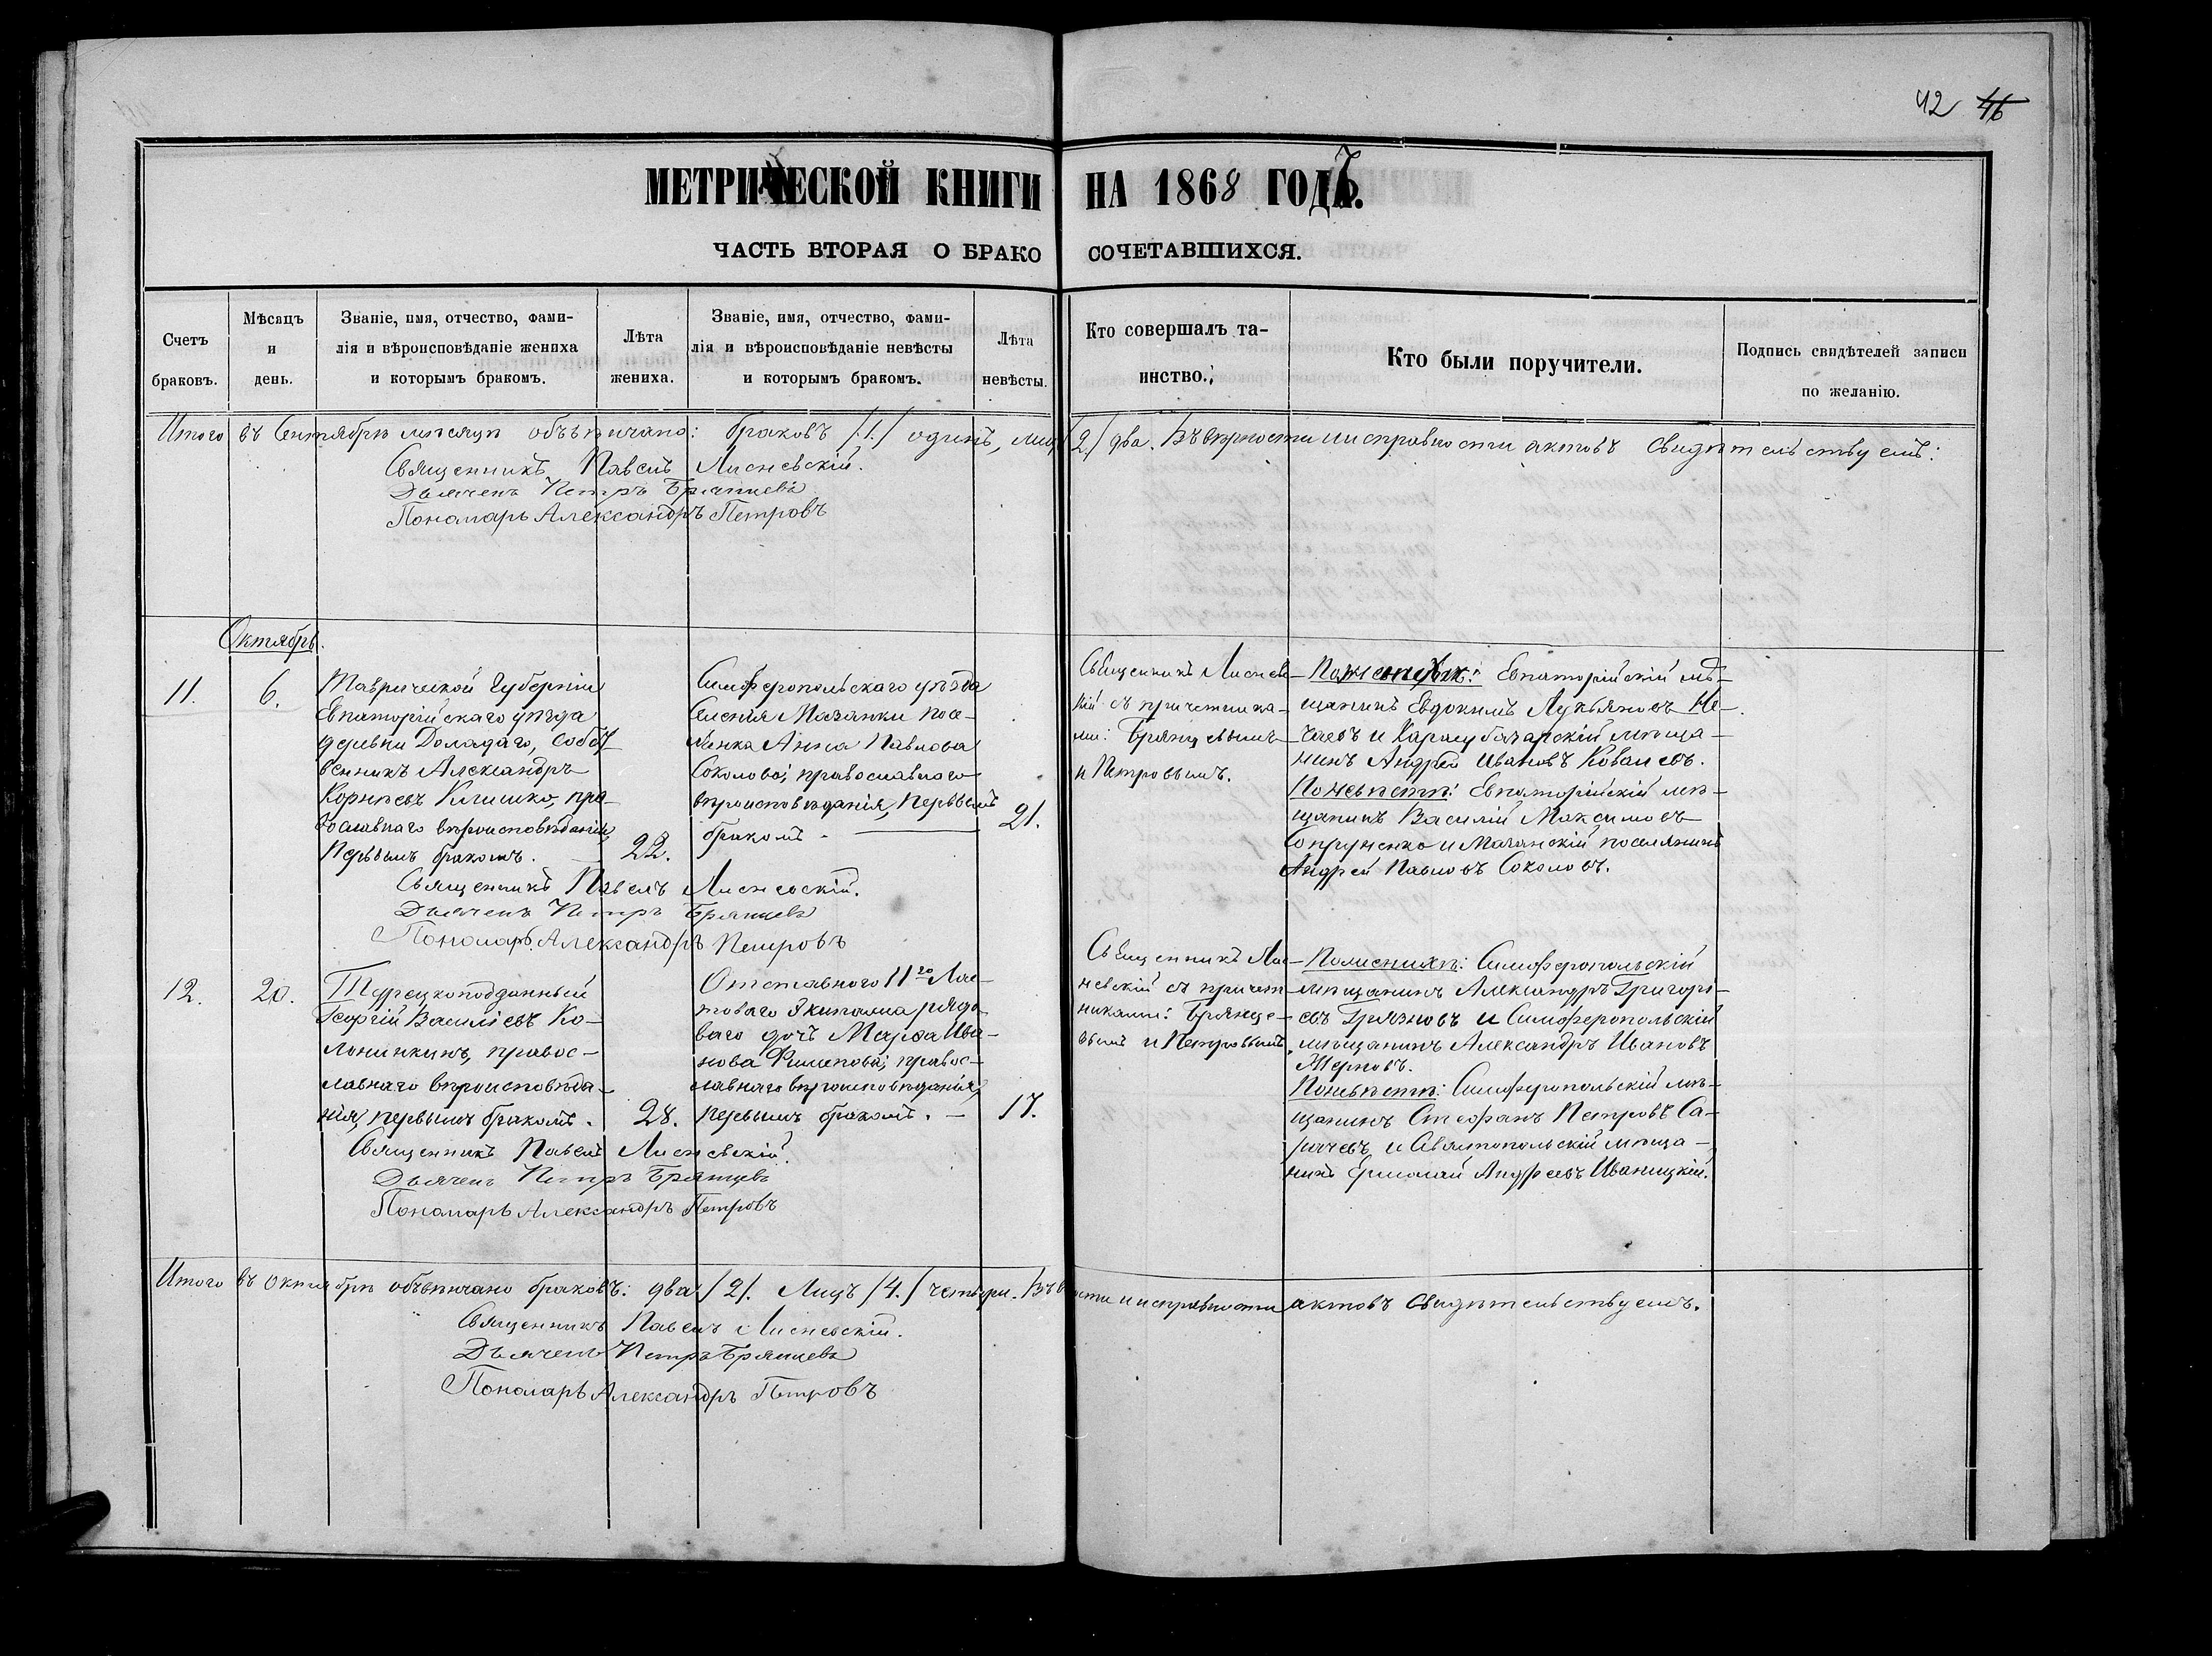 42 46
МЕТРИЧЕСКОЙ КНИГИ НА 1868 ГОДЪ.
ЧАСТЬ ВТОРАЯ О БРАКОСОЧЕТАВШИХСЯ.
Счетъ браковъ.
Мѣсяцъ и день.
Званіе, имя, отчество, фами-
лія и вѣроисповѣданіе жениха
и которымъ бракомъ.
Лѣта жениха.
Званіе, имя, отчество, фами-
лія и вѣроисповѣданіе невѣсты
и которымъ бракомъ.
Лѣта невѣсты.
Кто совершалъ та-
инство.
Кто были поручители.
Подпись свидѣтелей записи
по желанію.
Итого въ Сентябрѣ мѣсяцѣ обвѣнчано: браковъ /1./ одинъ, лицъ /2./ два. Въ вѣрности и исправности актовъ свидѣтельствуемъ:
Священникъ Павелъ Лисневскій.
Дьячекъ Петръ Брянцевъ
Пономарь Александръ Петровъ
Октябрь.
11.
6.
Таврической Губерніи
Евпаторійскаго уѣзда
деревни собст-
венникъ Александръ
Корнѣевъ Климко, пра-
вославнаго вѣроисповѣданія,
первымъ бракомъ.
22.
Симферопольскаго уѣзда
Селенія Мазанки посе-
лянка Анна Павлова
Соколова, православнаго
вѣроисповѣданія, первымъ
бракомъ.
21.
Священникъ Лиснев-
скій съ причетника-
ми: Брянцевымъ
и Петровымъ.
По женихѣ: Евпаторійскій мѣ-
щанинъ Евдокимъ Лукьяновъ Не-
чаевъ и Карасубазарскій мѣща-
нинъ Андрей Ивановъ Ковалевъ.
По невѣстѣ: Евпаторійскій мѣ-
щанинъ Василій Максимовъ
Сопруненко и Мазанскій поселянинъ
Андрей Павловъ Соколовъ.
Священникъ Павелъ Лисневскій.
Дьячекъ Петръ Брянцевъ
Пономарь Александръ Петровъ
12.
20.
Турецкоподданный
Георгій Василіевъ Ко-
лонинкинъ, правос-
лавнаго вѣроисповѣда-
нія, первымъ бракомъ.
28.
Отставного 11го Лас-
товаго Экипажа рядо-
ваго дочь Марѳа Ива-
нова Филипова, правос-
лавнаго вѣроисповѣданія,
первымъ бракомъ.
17.
Священникъ Лис-
невскій съ причет-
никами: Брянце-
вымъ и Петровымъ.
По женихѣ: Симферопольскій
мѣщанинъ Александръ Григорі-
евъ Грязновъ и Симферопольскій
мѣщанинъ Александръ Ивановъ
Жерновъ.
По невѣстѣ: Симферопольскій мѣ-
щанинъ Стефанъ Петровъ Са-
рачевъ, и Святопольскій мѣща-
нинъ Ермолай Андреевъ Иваницкій.
Священникъ Павелъ Лисневскій.
Дьячекъ Петръ Брянцевъ
Пономарь Александръ Петровъ
Итого въ Октябрѣ обвѣнчано браковъ: два /2/. Лицъ /4./ четыри. Въ вѣрности и исправности актовъ свидѣтельствуемъ.
Священникъ Павелъ Лисневскій.
Дьячекъ Петръ Брянцевъ
Пономарь Александръ Петровъ